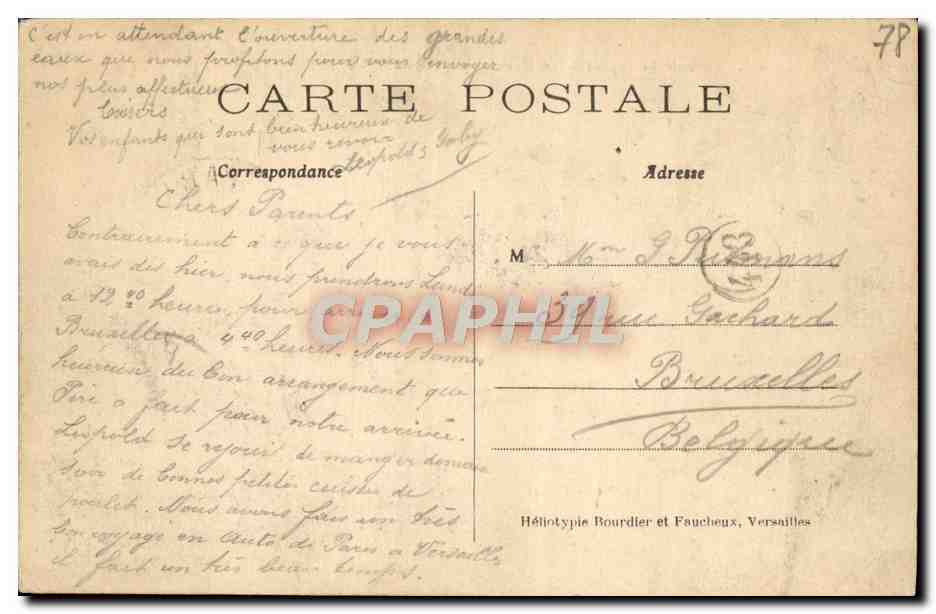 C'est en attendant l'ouverture des grandes
eaux que nous profitons pour vous envoyer
nos plus affectueux
baisers
Vos enfants qui sont bien heureux de
vous revoir
Léopold & Gaby
78
CARTE POSTALE
Correspondance
Adresse
Chers Parents
Contrairement à ce que je vous
avais dis hier, nous prendrons Lundi
à 12 40 heures, pour arriver à
Bruxelles à 4 40 heures. Nous sommes
heureux du bon arrangement que
Père a fait pour notre arrivée.
Léopold se rejouit de manger demain
soir de bonnes petites cuisses de
poulet. Nous avons fais un très
bon voyage en Auto de Paris à Versailles
il fait un très beau temps.
M Mme G
39 rue Gachard
Bruxelles
Belgique
Héliotypie Bourdier et Faucheux, Versailles
CPAPHIL